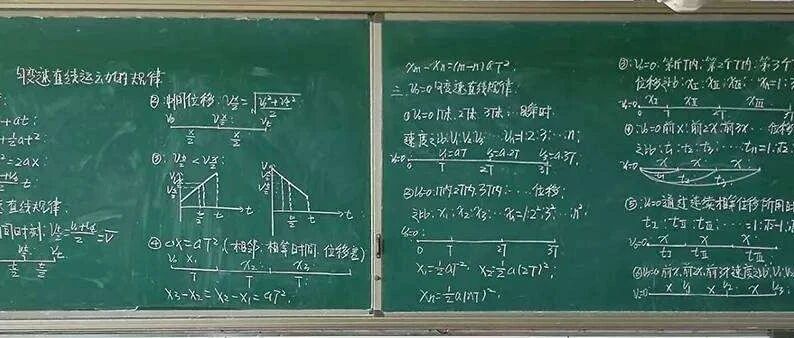 匀变速直线运动的规律
at:
½at²
=2ax:
直线规律.
间时刻: V_{t/2}=\frac{V₀+Vₜ}{2}=\overline{V}
t/2 t/2
②中间位移: V_{x/2}=\sqrt{\frac{V₀²+Vₜ²}{2}}
V₀ V_{x/2} Vₜ
x/2 x/2
③: V_{t/2}<V_{x/2}
t/2 t t/2 t
④ △x=aT².(一相邻.相等时间.位移差)
V₀ x₁ x₂ x₃
T T T
x₃-x₂=x₂-x₁=aT².
xm-xn=(m-n)aT².
三. V₀=0匀变速直线规律.
①V₀=0 1T末.2T末.3T末…
速度之比:V₁:V₂:V₃…Vn=1:2:3:…n
V₀=0 V₁=aT V₂=a·2T V₃=a·3T.
T 2T 3T
②V₀=0.1T内2T内3T内…位移
之比:x₁:x₂:x₃:…xn=1:2²:3²…n².
V₀=0:
0 T 2T 3T
x₁=½aT² x₂=½a(2T)².
xn=½a(nT)².
③:V₀=0.第1个T内:第2个T内:第3个
位移之比:xⅠ:xⅡ:xⅢ:…xn=1:3
V₀=0 xⅠ xⅡ xⅢ
0 T 2T 3T
④V₀=0前x:前2x.前3x…位移
之比:t₁:t₂:t₃:…tn=1:√2:
V₀=0 x x x
t₁ t₂ t₃
⑤:V₀=0通过连续相等位移所用时
tⅠ:tⅡ:tⅢ:…=1:√2-1:
V₀=0 x x x
tⅠ tⅡ tⅢ
⑥V₀=0前x.前2x.前3x速度之比:V₁:V₂
V₀=0 x V₁ x V₂ x V₃